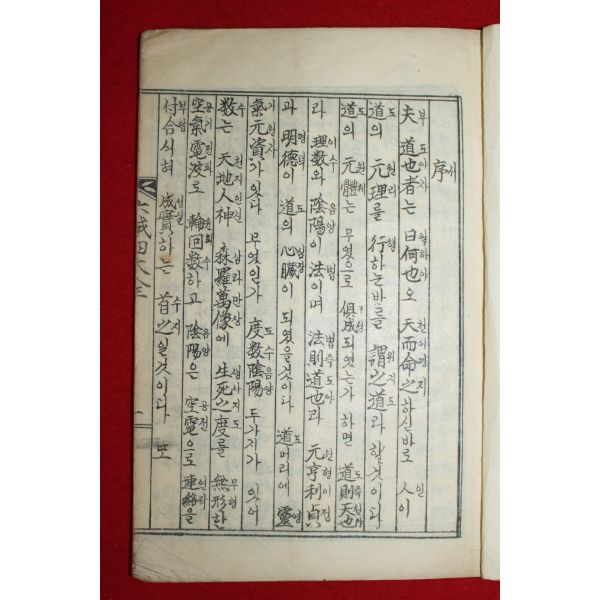 序서
夫부 道도也야者자는 曰왈何하也야오 天천而이命명之지하신바로 人인이
道도의 元원理리를 行행하는바를 謂위之지道도라 할것이다
道도의 元원體체는 무엇으로 俱구成성되엿는가 하면 道도則즉天천也야
라 理이数수와 陰음陽양이 法법이며 法법則즉道도也야라 元원亨형利이貞정
과 明명德덕이 道도의 心심臟장이 되엿을것이다 道도머리에 靈영
氣기元원資자가 잇다 무엇인가 度도数수陰음陽양 두가지가 잇어
数수는 天천地지人인神신 森삼羅라萬만像상에 生생死사之지度도를 無무形형한
空공氣기電전波파로 輪윤回회数수하고 陰음陽양은 空공電전으로 連연絡락을
付부合합식혀 成성實실하는 首수之지일것이다 또